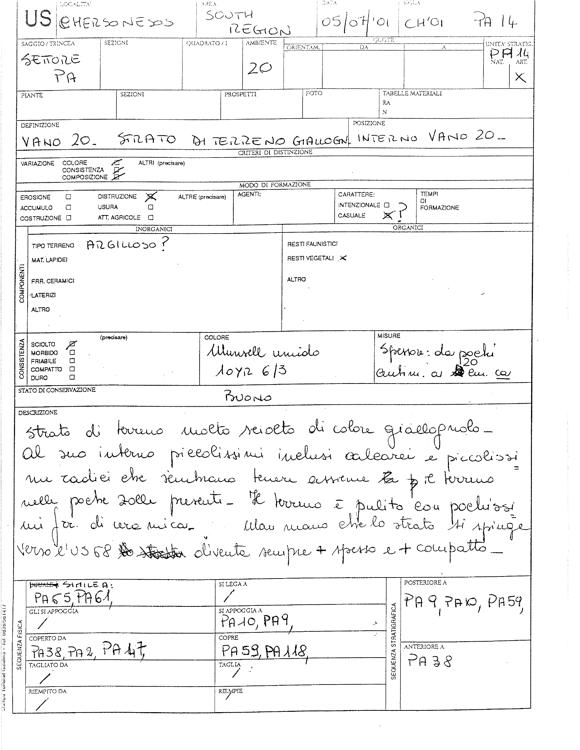 US
LOCALITA'
CHERSONESOS
AREA
SOUTH REGION
DATA
05/07/'01
SIGLA
CH'01 PA 14
SAGGIO/TRINCEA
SETTORE
PA
SEZIONI
QUADRATO/I
AMBIENTE
20
QUOTE
ORIENTAM.
DA
A
UNITA' STRATIG.
PA 14
NAT. ART.
X
PIANTE
SEZIONI
PROSPETTI
FOTO
TABELLE MATERIALI
RA
N
DEFINIZIONE
VANO 20_ STRATO DI TERRENO GIALLOGN.
POSIZIONE
INTERNO VANO 20_
CRITERI DI DISTINZIONE
VARIAZIONE COLORE ALTRI (precisare)
CONSISTENZA
COMPOSIZIONE
MODO DI FORMAZIONE
EROSIONE DISTRUZIONE X ALTRE (precisare)
ACCUMULO USURA
COSTRUZIONE ATT. AGRICOLE
AGENTI:
CARATTERE:
INTENZIONALE
CASUALE X ?
TEMPI
DI
FORMAZIONE
COMPONENTI
INORGANICI
TIPO TERRENO ARGILLOSO?
MAT. LAPIDEI
FRR. CERAMICI
LATERIZI
ALTRO
ORGANICI
RESTI FAUNISTICI
RESTI VEGETALI X
ALTRO
CONSISTENZA
(precisare)
SCIOLTO
MORBIDO
FRIABILE
COMPATTO
DURO
COLORE
Munsell umido
10YR 6/3
MISURE
Spessore: da pochi
centim. a 20 cm. ca
STATO DI CONSERVAZIONE
BUONO
DESCRIZIONE
Strato di terreno molto sciolto di colore giallognolo_
Al suo interno piccolissimi inclusi calcarei e piccolissi=
me radici che sembrano tenere assieme il terreno
nelle poche zolle presenti_ Il terreno è pulito con pochissi=
mi fr. di ceramica_ Man mano che lo strato si spinge
verso l'US 68 diventa sempre + spesso e + compatto_
SEQUENZA FISICA
SIMILE A:
PA65, PA61,
SI LEGA A
/
GLI SI APPOGGIA
/
SI APPOGGIA A
PA10, PA9,
COPERTO DA
PA38, PA2, PA147
COPRE
PA59, PA118,
TAGLIATO DA
/
TAGLIA
/
RIEMPITO DA
/
RIEMPIE
/
SEQUENZA STRATIGRAFICA
POSTERIORE A
PA9, PA10, PA59,
ANTERIORE A
PA38